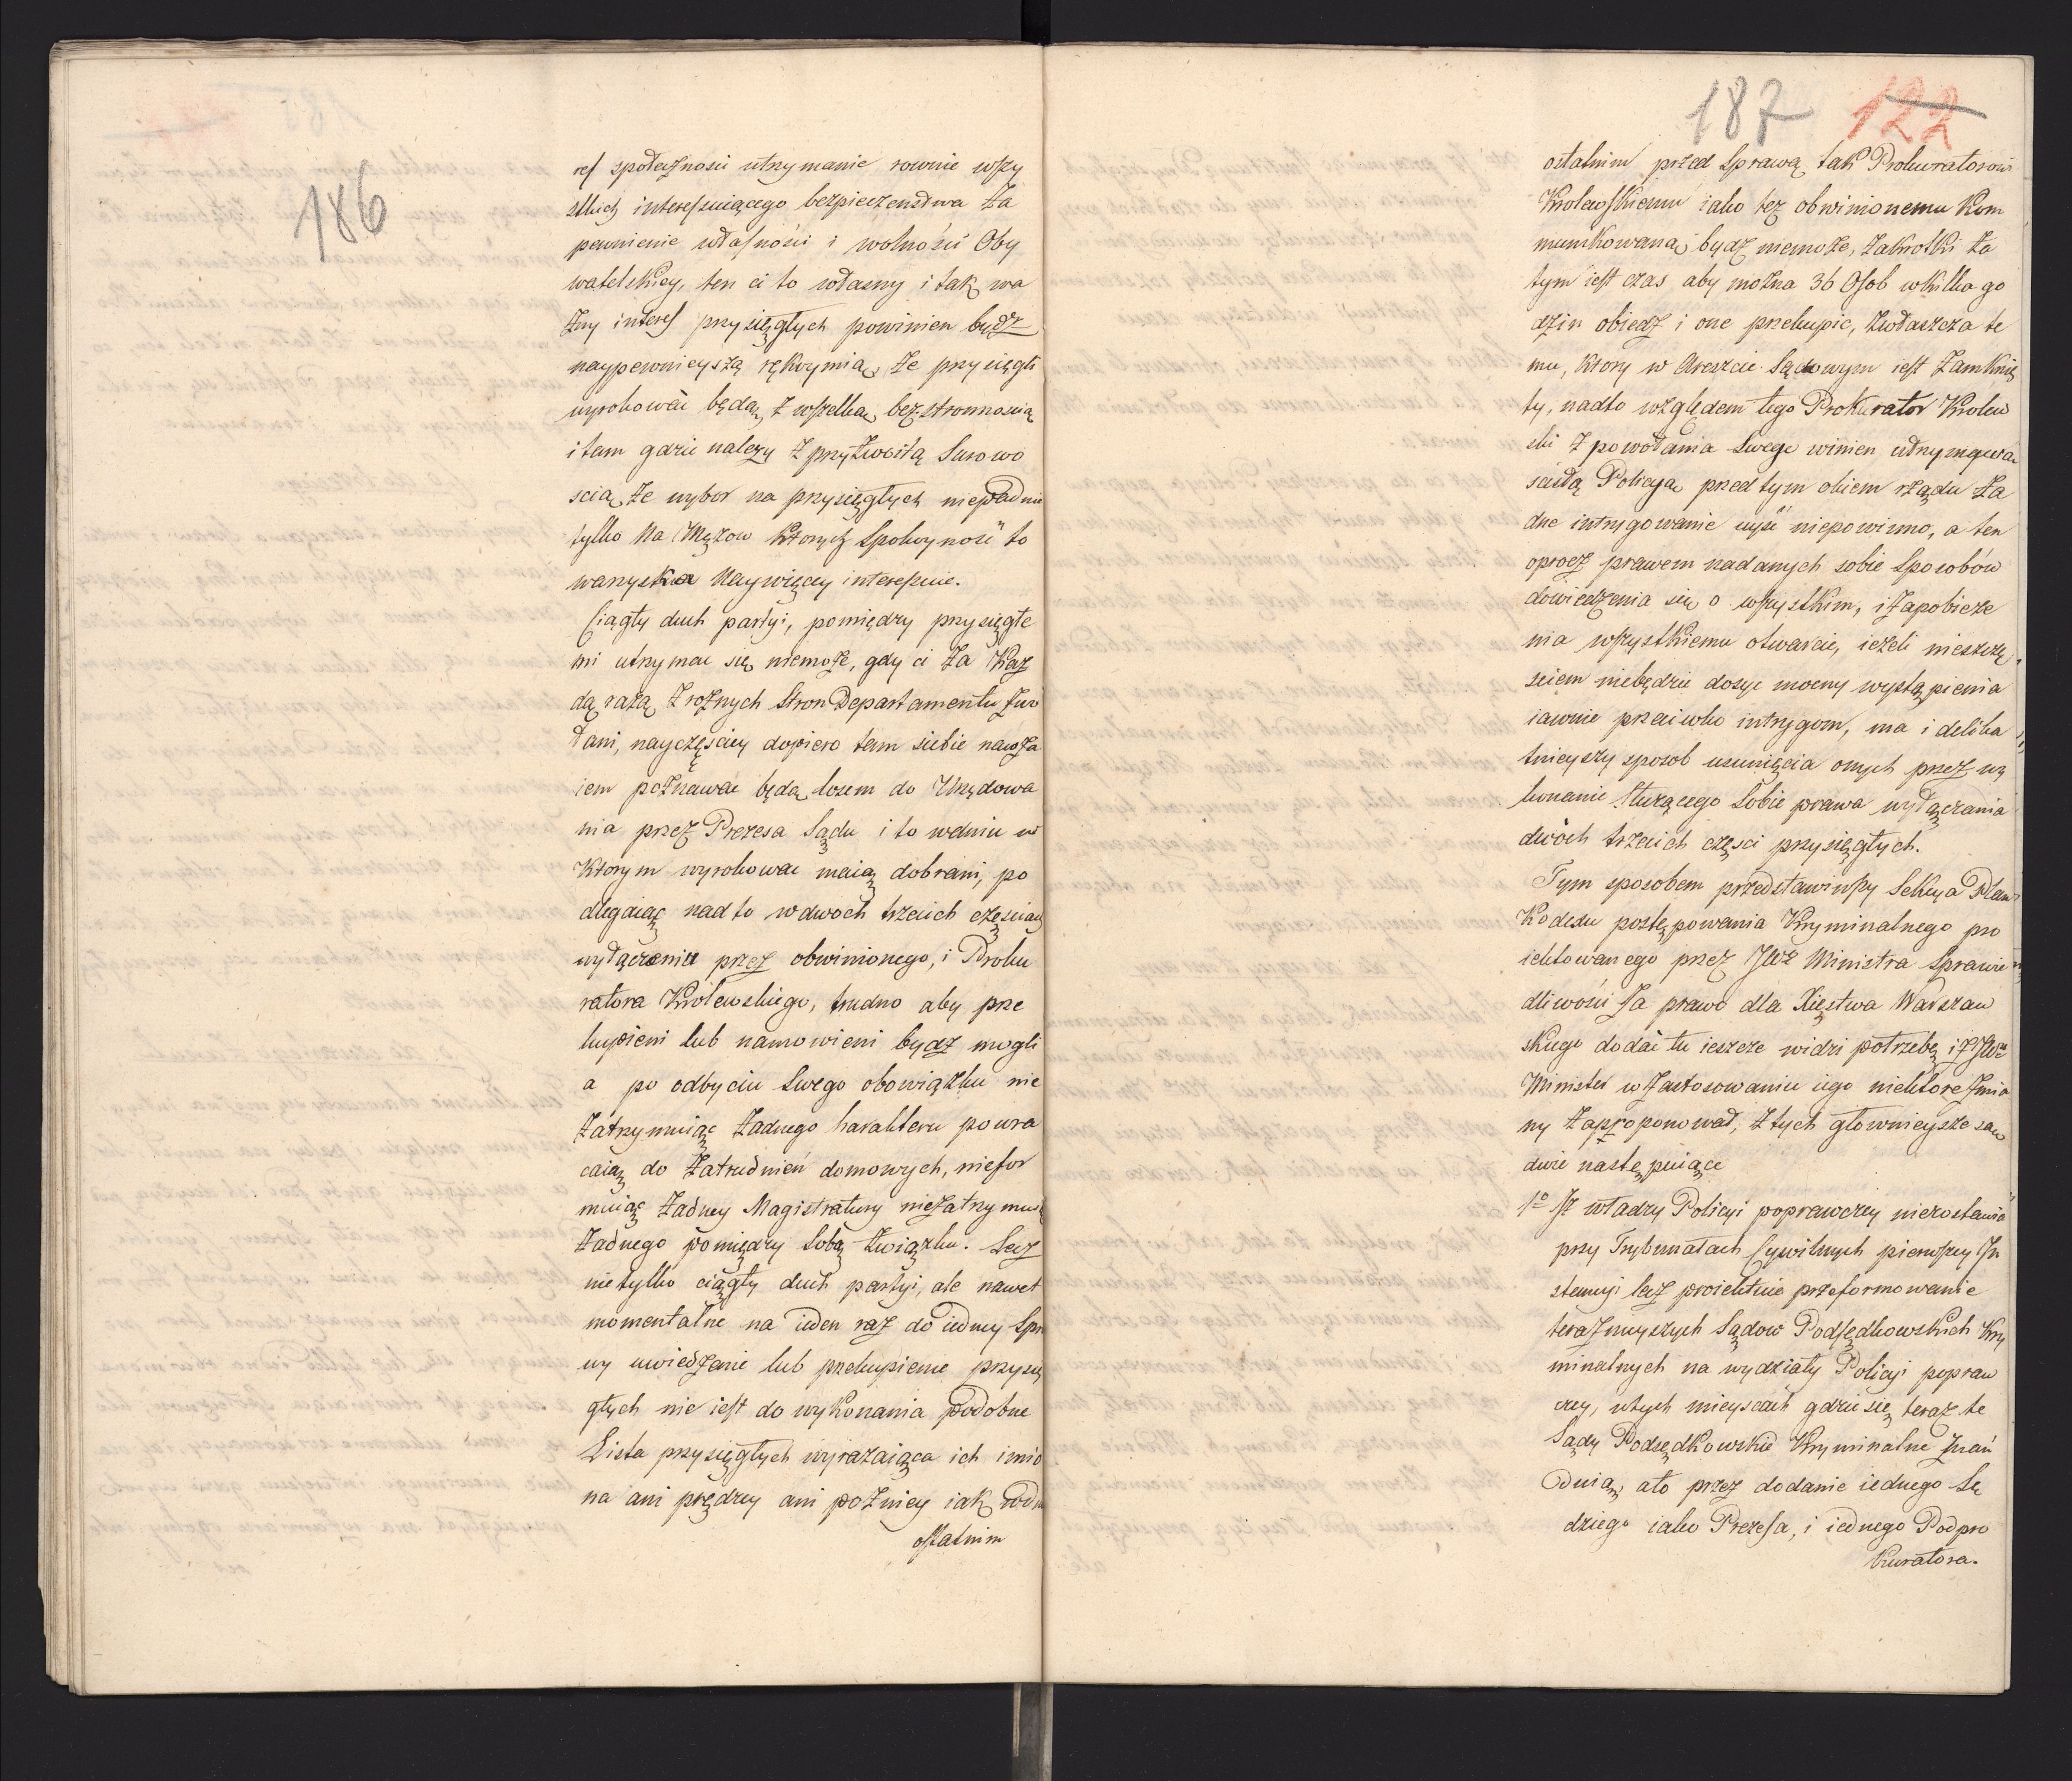 186
res społeczności utrzymanie rownie wszy
stkich interessuiącego bezpieczeństwa Za
pewnienie własności i wolności Oby
watelskiey, ten ci to własny i tak wa
żny interes przysięgłych powinien bydź
naypewnieyszą rękoymią, że przysięgli
wyrokować będą z wszelką bezstronnością
i tam gdzie należy z przyzwoitą Surowo
scią, że wybor na przysięgłych niepadnie
tylko Na Mężow ktorych Spokoyność to
warzyska Naywięcey interessuie.
Ciągły duch partyi, pomiędzy przysięgłe
mi utrzymać się niemoże, gdy ci za każ
dą razą z rożnych stron Departamentu zwo
łani, nayczęściey dopiero tam siebie nawza
iem poznawać będą losem do Urzędowa
nia przez Prezesa Sądu i to w dniu w
Ktorym wyrokować maią dobrani, po
dlegaiąc nad to w dwoch trzecich częsciach
wyłączeniu przez obwinionego, i Proku
ratora Krolewskiego, trudno aby prze
kupieni lub namowieni bydź mogli
a po odbyciu Swego obowiązku nie
zatrzymuiąc żadnego harakteru powra
caią do zatrudnień domowych, niefor
muiąc żadney Magistratury niezatrzymuią
żadnego pomiędzy Sobą związku. Lecz
nietylko ciągły duch partyi, ale nawet
momentalne na ieden raz do iedney Spra
wy uwiedzenie lub przekupienie przysię
głych nie iest do wykonania podobne
Lista przysięgłych wyrażaiąca ich imio
na ani prędzey ani pożniey iak w dniu
ostatnim
187 122
ostatnim przed Sprawą tak Prokuratorowi
Krolewskiemu iako też obwinionemu Kom
munikowaną bydź niemoże, zakrotki za
tym iest czas aby można 36 Osob w kilka go
dzin obiedz i one przekupic, zwłaszcza te
mu, ktory w Areszcie Sądowym iest zamknię
ty, nadto względem tego Prokurator Krolew
ski z powołania Swego winien utrzymywac
scisłą Policyą przed tym okiem rządu ża
dne intrygowanie uyść niepowinno, a ten
oprocz prawem nadanych sobie Sposobów
dowiedzenia się o wszystkim, i zapobieże
nia wszystkiemu otwarcie, ieżeli nieszczę
sciem niebędzie dosyc mocny wystąpienia
iawnie przeciwko intrygom, ma i delika
tnieyszy sposob usunięcia onych przez wy
konanie służącego Sobie prawa wyłączania
dwóch trzecich częsci przysięgłych.
Tym sposobem przedstawiwszy Sekcya Plan
Kodexu postępowania Kryminalnego pro
iektowanego przez JWo Ministra Sprawie
dliwości za prawo dla Xięstwa Warszaw
skiego dodać tu ieszcze widzi potrzebę iż JWny
Minister w zastosowaniu iego niektore zmia
ny zaproponował, z tych głownieysze są
dwie następuiące
1o Iż władzy Policyi poprawczey niezostawia
przy Trybunałach Cywilnych pierwszey In
stancyi lecz proiektuie przeformowanie
terazmieyszych Sądow Podsędkowskich Kry
minalnych na wydziały Policyi popraw
czey, w tych mieyscach gdzie się teraz te
Sądy Podsędkowskie Kryminalne znay
duią, a to przez dodanie iednego Sę
dziego iako Prezesa, i iednego Podpro
kuratora.